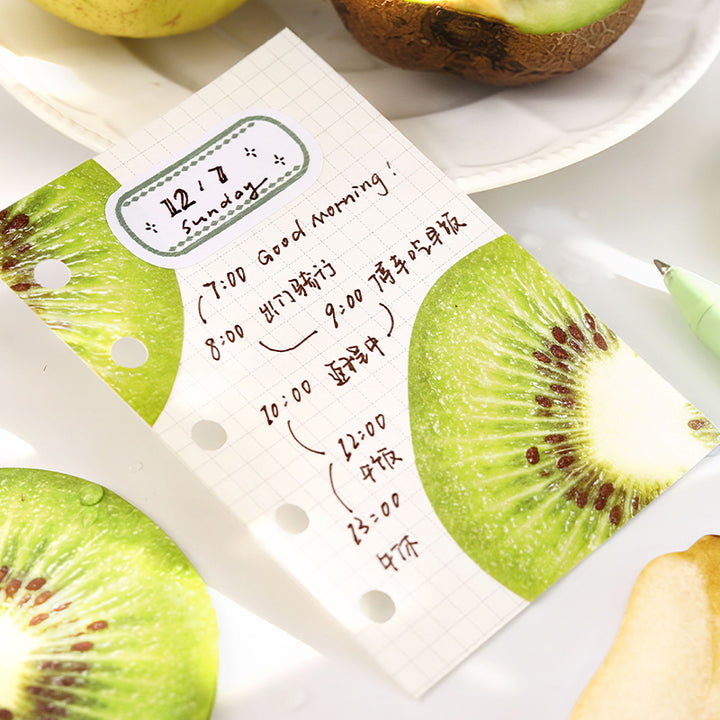 12.7
Sunday
7:00 Good Morning!
8:00 出门骑行
9:00 停车吃早饭
10:00 返程中
12:00
午饭
13:00
午休